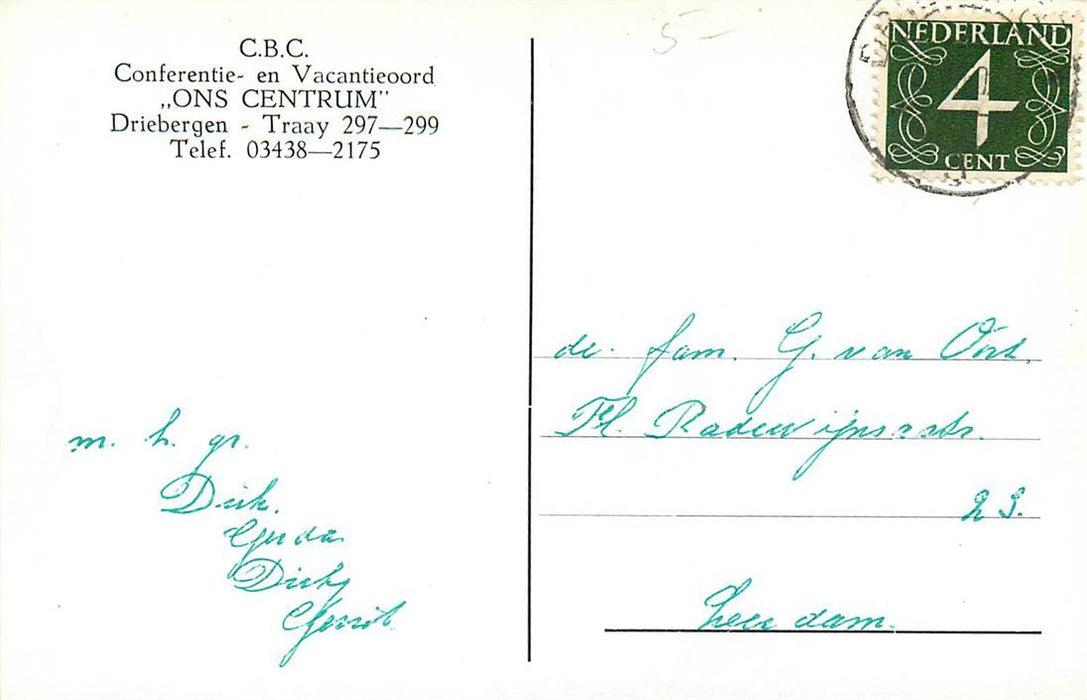 C.B.C.
Conferentie- en Vacantieoord
„ONS CENTRUM”
Driebergen - Traay 297—299
Telef. 03438—2175
5-
NEDERLAND
4
CENT
de. fam. G. van Oort.
Fl. Radewijnsstr.
23.
Leerdam.
m. h. gr.
Dirk.
Gerda
Dicky
Gerrit